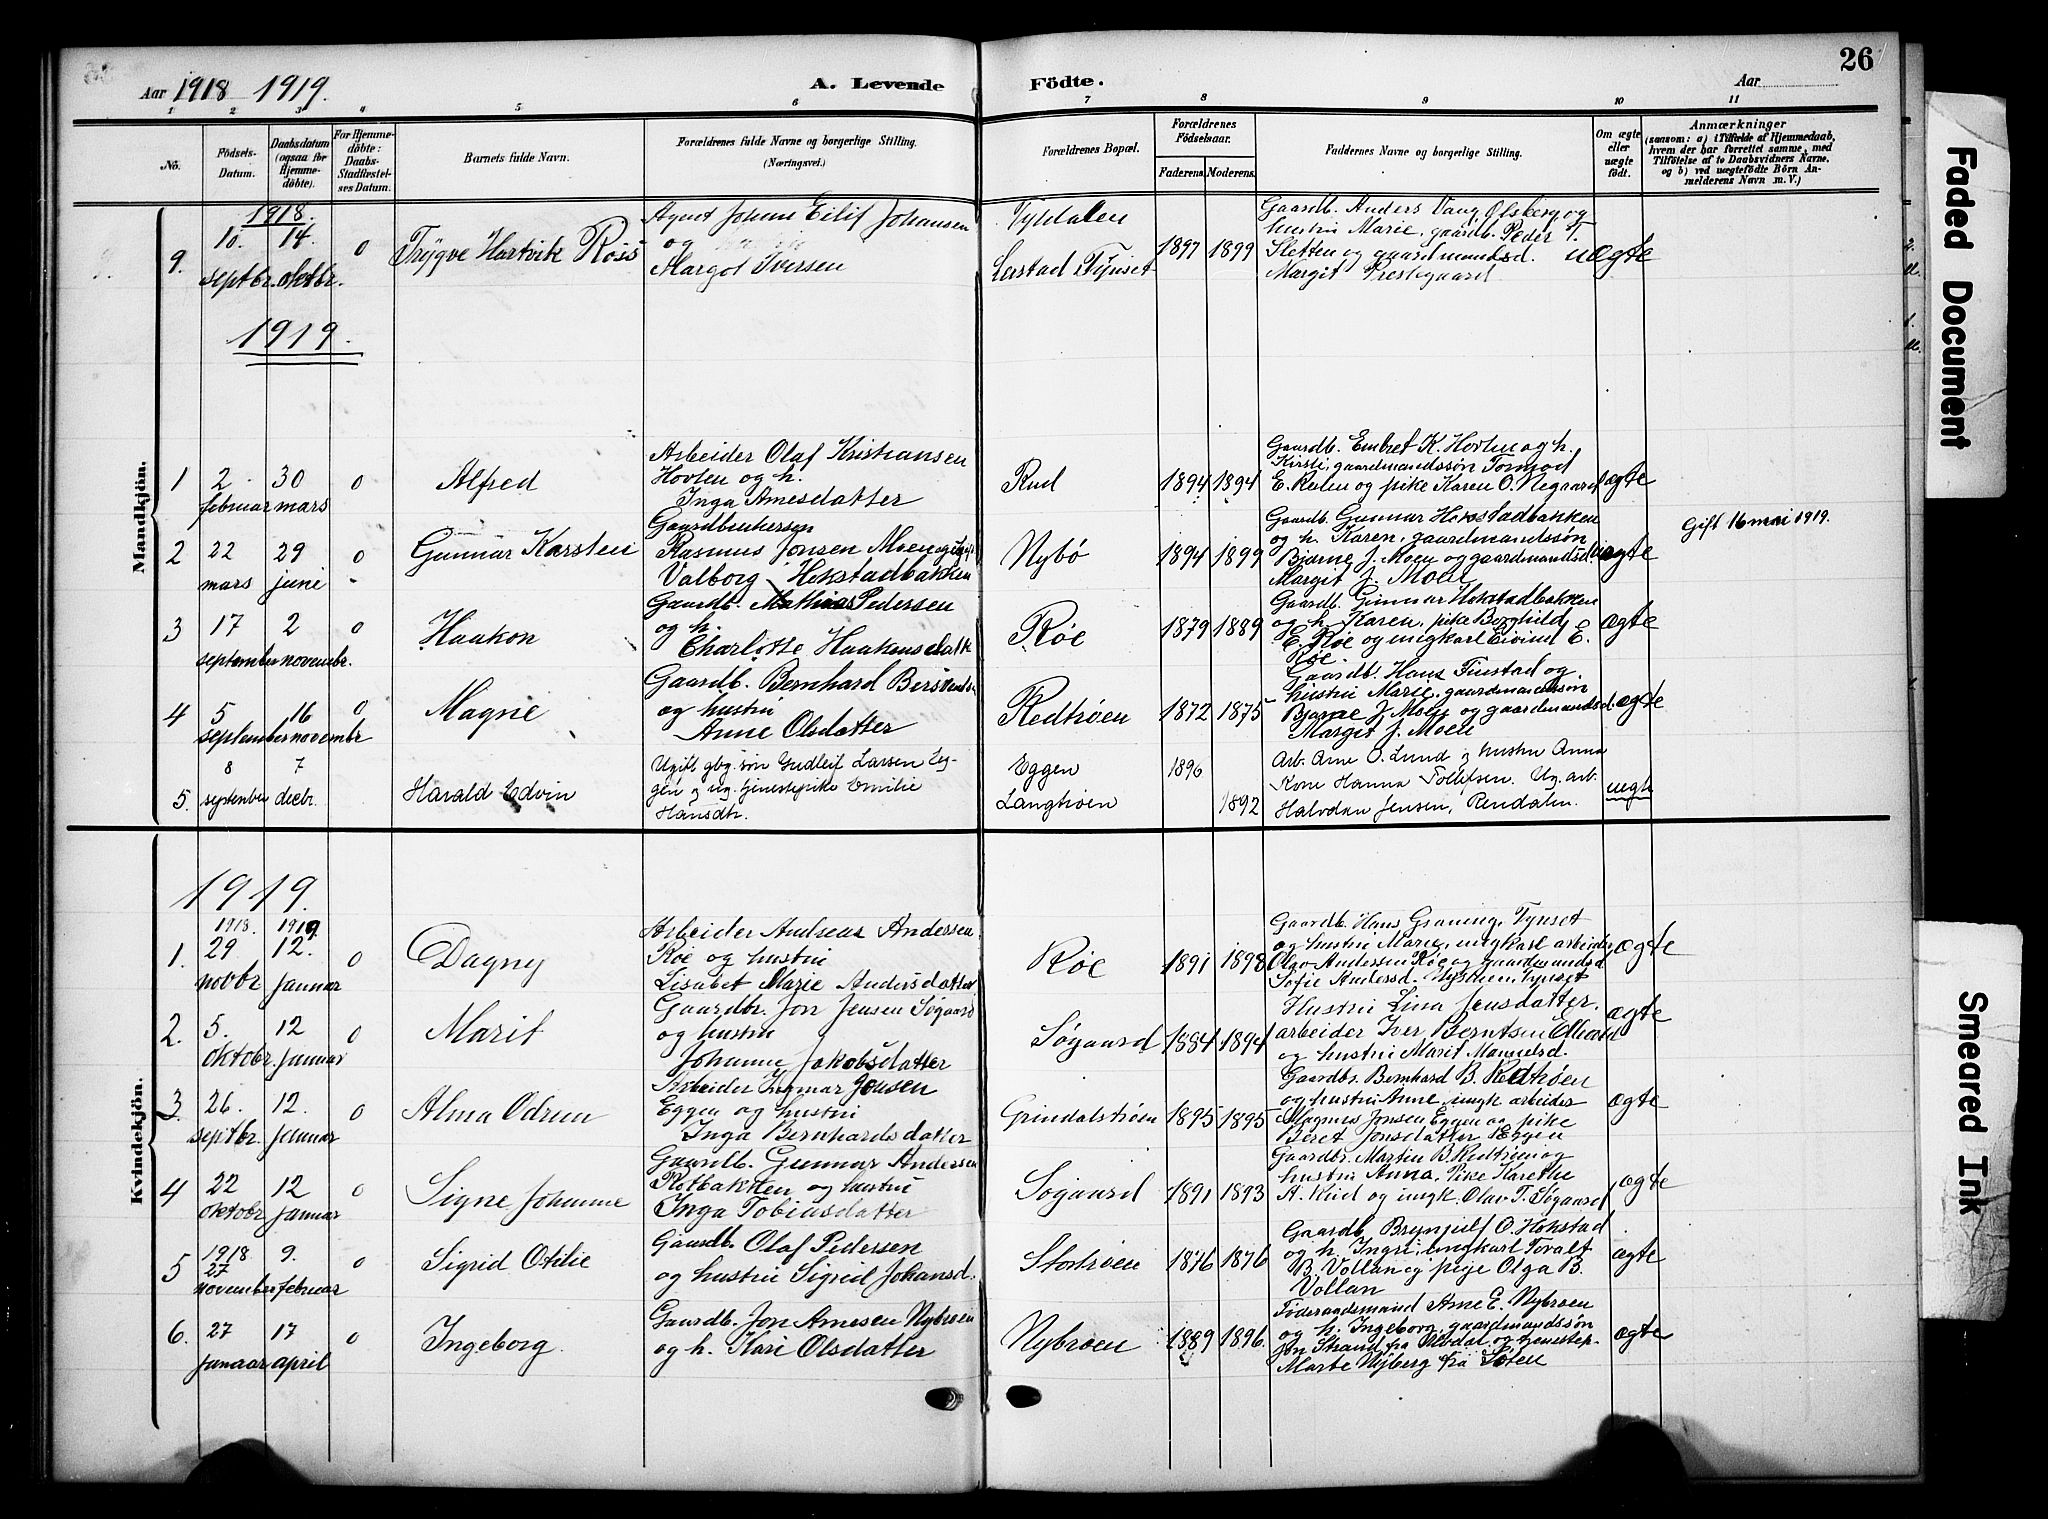 Aar 1918 1919.
A. Levende Födte.
Aar
26
1 2 3 4 5 6 7 8 9 10 11
No.
Födsels-Datum.
Daabsdatum (ogsaa for Hjemmedöbte).
For Hjemmedöbte: Daabs-Stadfæstelses Datum.
Barnets fulde Navn.
Forældrenes fulde Navne og borgerlige Stilling. (Næringsvei.)
Forældrenes Bopæl.
Forældrenes Födselsaar.
Faderens. Moderens.
Faddernes Navne og borgerlige Stilling.
Om ægte eller uægte födt.
Anmærkninger
(saasom: a) i Tilfælde af Hjemmedaab, hvem der har forrettet samme, med Tilföielse af to Daabsvidners Navne, og b) ved uægtefödte Börn Anmelderens Navn m. V.)
Mandkjön.
1918.
9. 10 septbr. 14. oktbr. 0
Trygve Hartvik Røss
Agent Johan Eilif Johansen
og
Margot Iversen
Tyldalen
Lerstad Tynset
1897 1899
Gaardb. Anders Vang, Olsberg og
hustru Marie, gaardb. Peder T.
Sletten og gaardmandsd.
Margit Prestgaard
uægte
1919.
1 2 februar 30 mars 0
Alfred
Arbeider Olaf Kristiansen
Hovten og h.
Inga Arnesdatter
Rud
1894 1894
Gaardb. Embret K. Hovten og h.
Kirsti, gaardmandssøn Tormod
E. Reilen og pike Karen O. Negaard
ægte
2 22 mars 29 juni 0
Gunnar Karsten
Gaardbrukersøn
Rasmus Jonsen Moen og ugift
Valborg Hokstadbakken
Nybø
1894 1899
Gaardb. Gunnar Hokstadbakken
og h. Karen, gaardmandssøn
Bjarne J. Moen og gaardmandsd.
Margit J. Moen
uægte
Gift 16 mai 1919.
3 17 september 2 novembr. 0
Haakon
Gaardb. Mathias Pedersen
og h.
Charlotte Haakensdatte
Røe
1879 1889
Gaardb. Gunnar Hokstadbakken
og h. Karen, pike Borghild
E. Røe og ungkarl Eivind E.
Røe.
ægte
4 5 september 16 novembr 0
Magne
Gaardb. Bernhard Bersvends
og hustru
Anne Olsdatter
Redtrøen
1872 1875
Gaardb. Hans Finstad og
hustru Marie, gaardmandssøn
Bjarne J. Moen og gaardmandsd.
Margit J. Moen
ægte
5. 8 september 7 decbr.
Harald Edvin
Ugift gbg. søn Gudleif Larsen Eg-
gen og ug. tjenestepike Emilie
Hansdtr.
Eggen
Langtrøen
1896
1892
Arb. Arne O. Lund og hustru Anna
Kone Hanna Tollefsen. Ug. arb.
Halvdan Jensen, Rendalen.
uegte
Kvindekjön.
1919.
1918. 1919.
1. 29 novbr 12. januar 0
Dagny
Arbeider Andreas Andersen
Røe og hustru
Lisabet Marie Andersdatter
Røe
1891 1898
Gaardb. Hans Graning, Tynset
og hustru Marie, ungkarl arbeider
Olav Andersen Røe og gaardmandsd
Sofie Andersd. Nystuen, Tynset
ægte
2. 5. oktobr. 12 januar 0
Marit
Gaardbr. Jon Jensen Søgaard
og hustru
Johanne Jakobsdatter
Søgaard
1884 1894
Hustru Lina Jensdatter,
arbeider Iver Berntsen
og hustru Marit Manuelsd.
ægte
3. 26. septbr. 12. januar 0
Alma Odrun
Arbeider Ingmar Jonsen
Eggen og hustru
Inga Bernhardsdatter
Grindalstrøen
1895 1895
Gaardbr. Bernhard B. Redtrøen
og hustru Anne, ungk arbeider
Magnus Jonsen Eggen og pike
Beret Jonsdatter Eggen
ægte
4 22 oktobr 12 januar 0
Signe Johanne
Gaardb. Gunnar Andersen
Rotbakken og hustru
Inga Tobiasdatter
Søgaard
1891 1893
Gaardbr. Martin B. Redtrøen og
hustru Anna, Pike Karethe
A. Rud og ungk. Olav T. Søgaard
ægte
5 1918 27 november 9. februar 0
Sigrid Otilie
Gaardb. Olaf Pedersen
og hustru Sigrid Johansd.
Stortrøen
1876 1876
Gaardb. Brynjulf O. Hokstad
og h. Ingri, ungkarl Toralf
B. Vollan og pige Olga B.
Vollan
ægte
6. 27 januar 17 april 0
Ingeborg.
Gaardb. Jon Arnesen Nybrøen
og h. Kari Olsdatter
Nybrøen
1889 1896
Føderaadsmand Arne E. Nybrøen
og h. Ingeborg, gaardmandssøn
Jon Strand fra Alvdal og tjenestep.
Marte Nyberg fra Solen
ægte
Faded Document
Smeared Ink